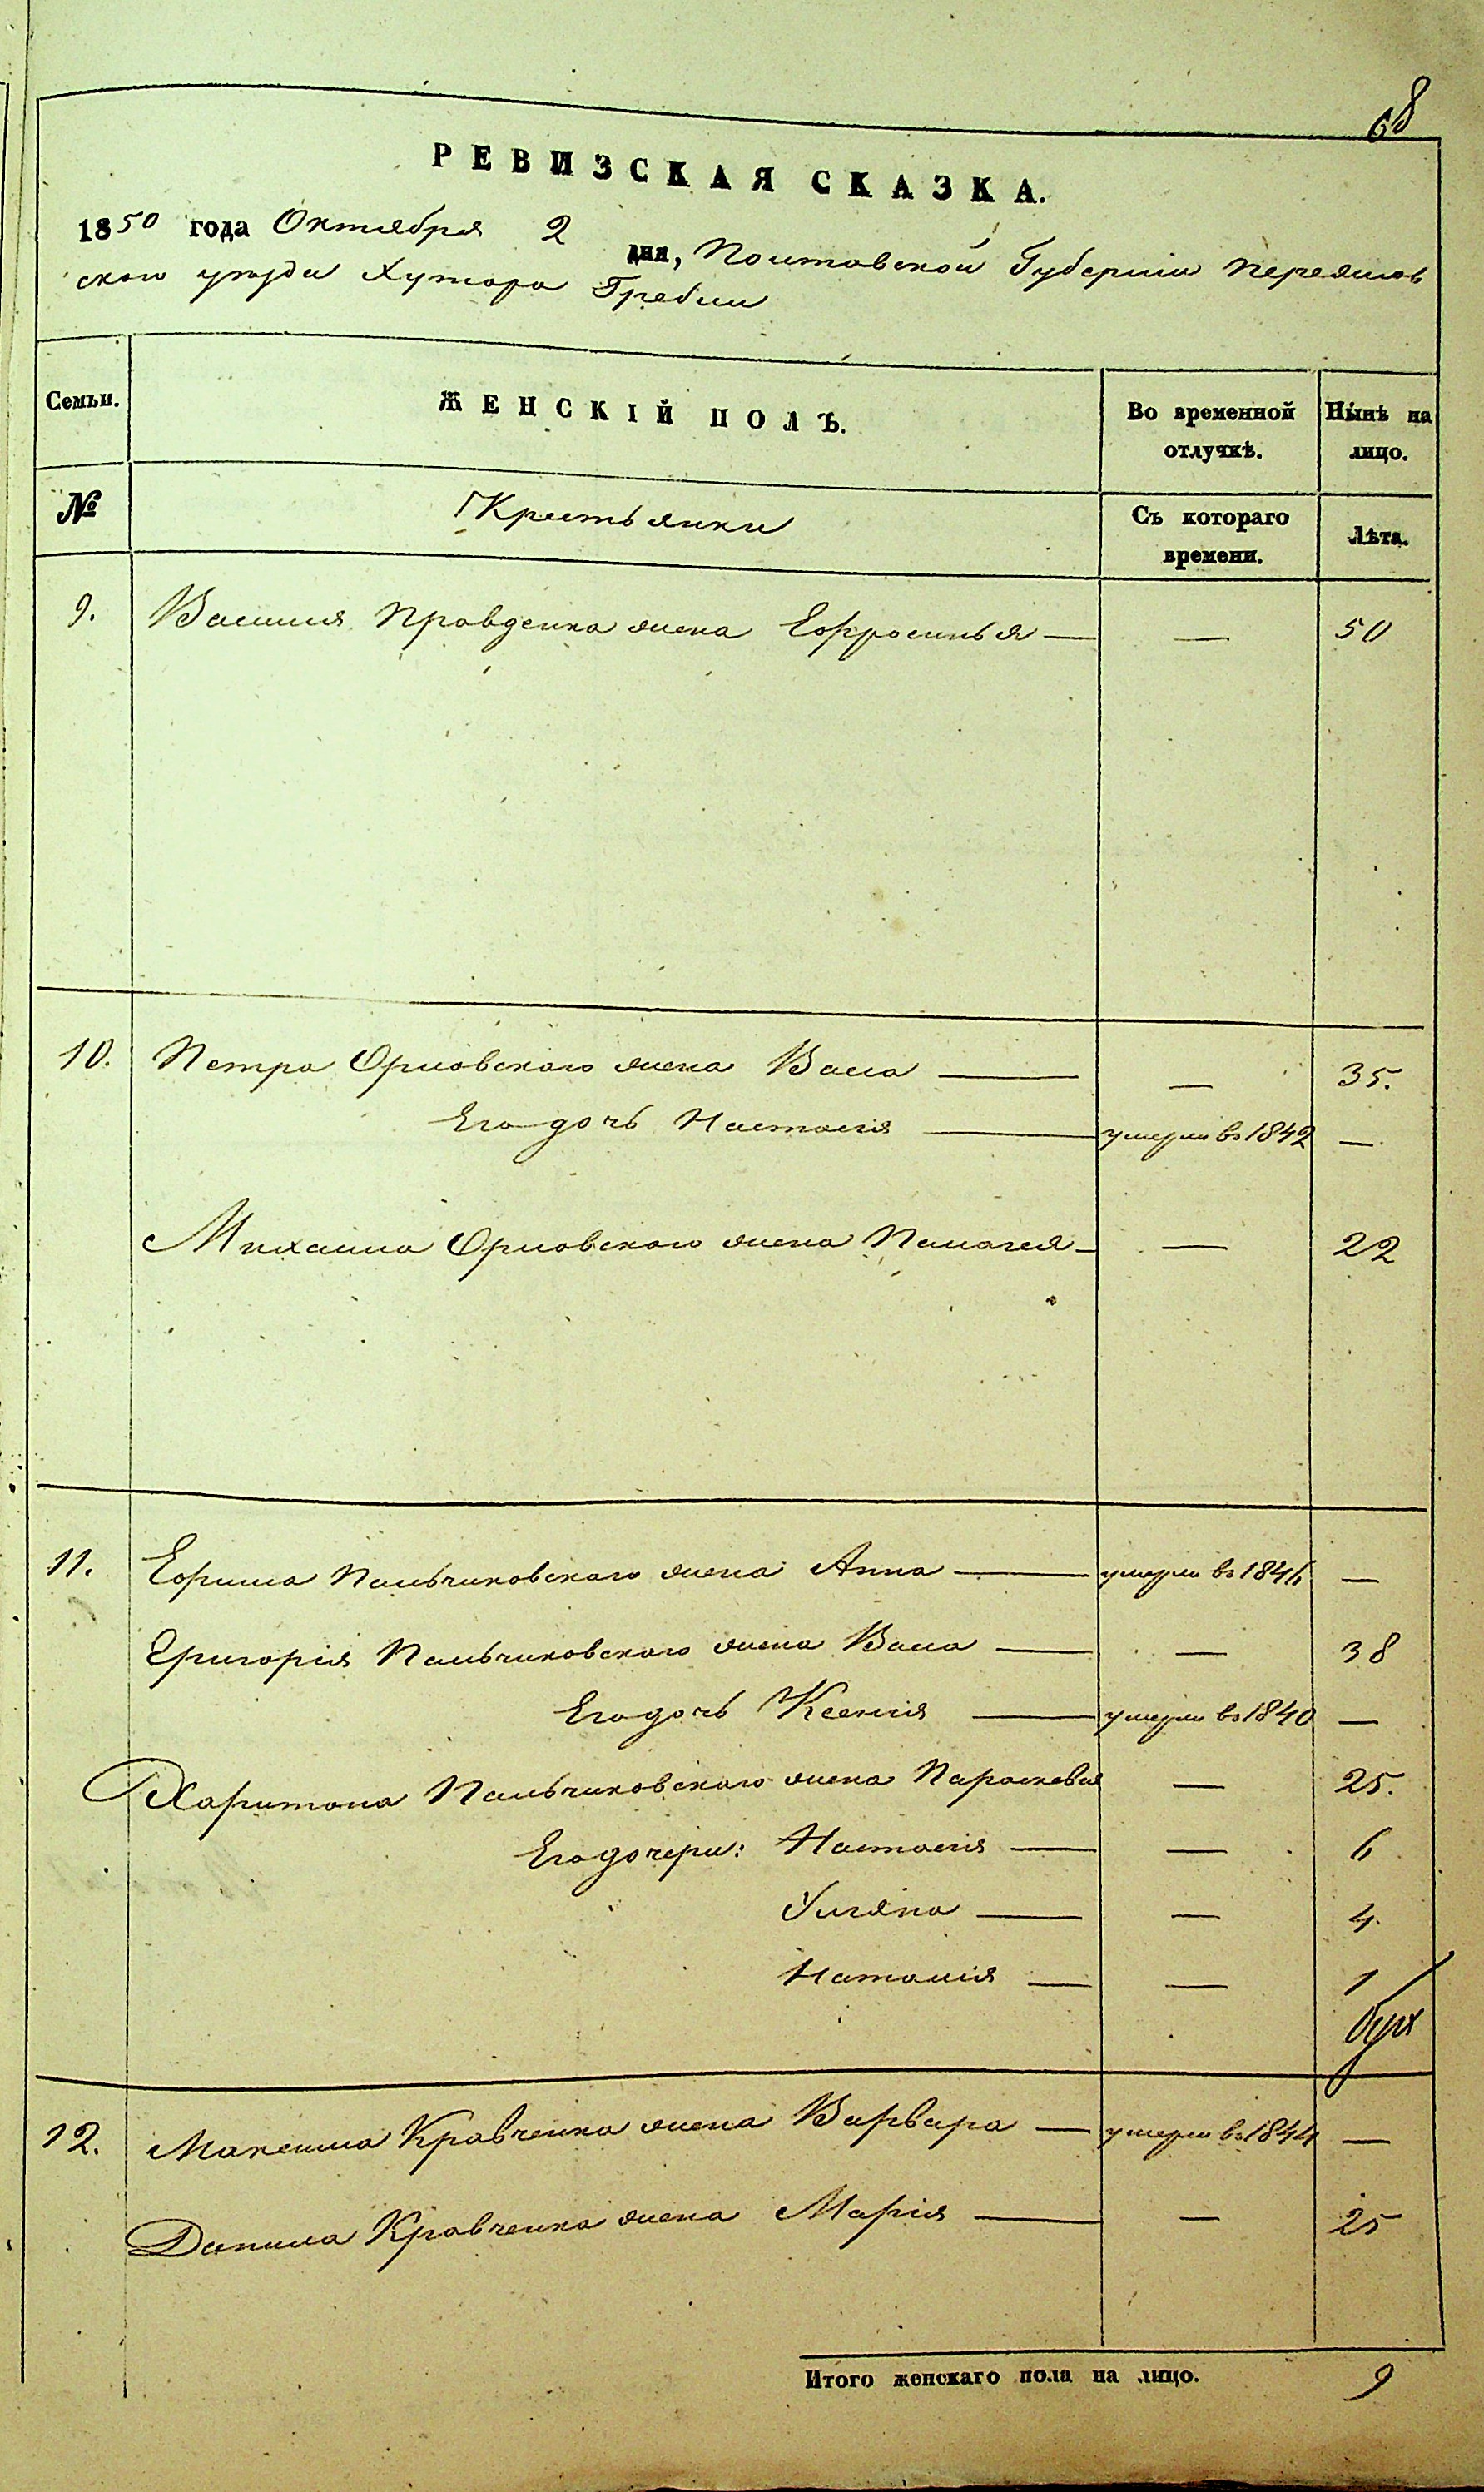 68
РЕВИЗСКАЯ СКАЗКА.
1850 года Октября 2 дня, Полтавской Губерніи Переяслов
ского уезда Хутора Гребли
Семьи. ЖЕНСКІЙ ПОЛЪ. Во временной отлучкѣ. Нынѣ на лицо.
№ Крестьянки Съ котораго времени. Лѣта.
9. Василія Правденка жена Ефросинья — — 50
10. Петра Орловскаго жена Васса — — 35.
Его дочь Настасія — умерла въ 1842 —
Михаила Орловскаго жена Палагея — — 22
11. Ефима Пальчиковскаго жена Анна — умерла въ 1846 —
Григорія Пальчиковскаго жена Васса — — 38
Его дочь Ксенія — умерла въ 1840 —
Харитона Пальчиковскаго жена Параскевія — 25.
Его дочери: Настасія — — 6
Уляна — — 4.
Наталія — — 1
12. Максима Кравченка жена Варвара — умерла въ 1844 —
Данила Кравченка жена Марія — — 25
Итого женскаго пола на лицо. 9